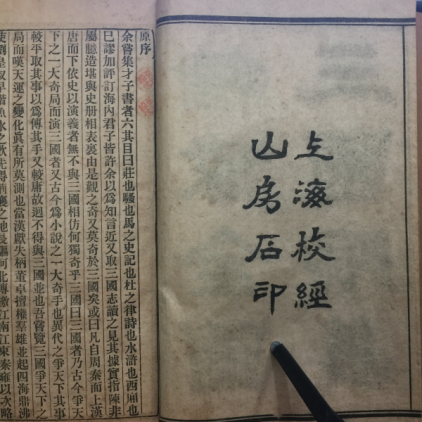 上海校經
山房石印
原序
余嘗集才子書者六其目曰莊也騷也馬之史記也杜之律詩也水滸也西廂也
已謬加評訂海內君子皆許余以為知言近又取三國志讀之見其據實指陳非
屬臆造堪與史冊相表裏由是觀之奇又莫奇於三國矣或曰凡自周秦而上漢
唐而下依史以演義者無不與三國相仿何獨奇乎三國曰三國者乃古今爭天
下之一大奇局而演三國者又古今為小說之一大奇手也異代之爭天下其事
較平取其事以為傳其手又較庸故迥不得與三國並也吾嘗覽三國爭天下之
局而嘆天運之變化真有所莫測也當漢獻失柄董卓擅權羣雄並起四海鼎沸